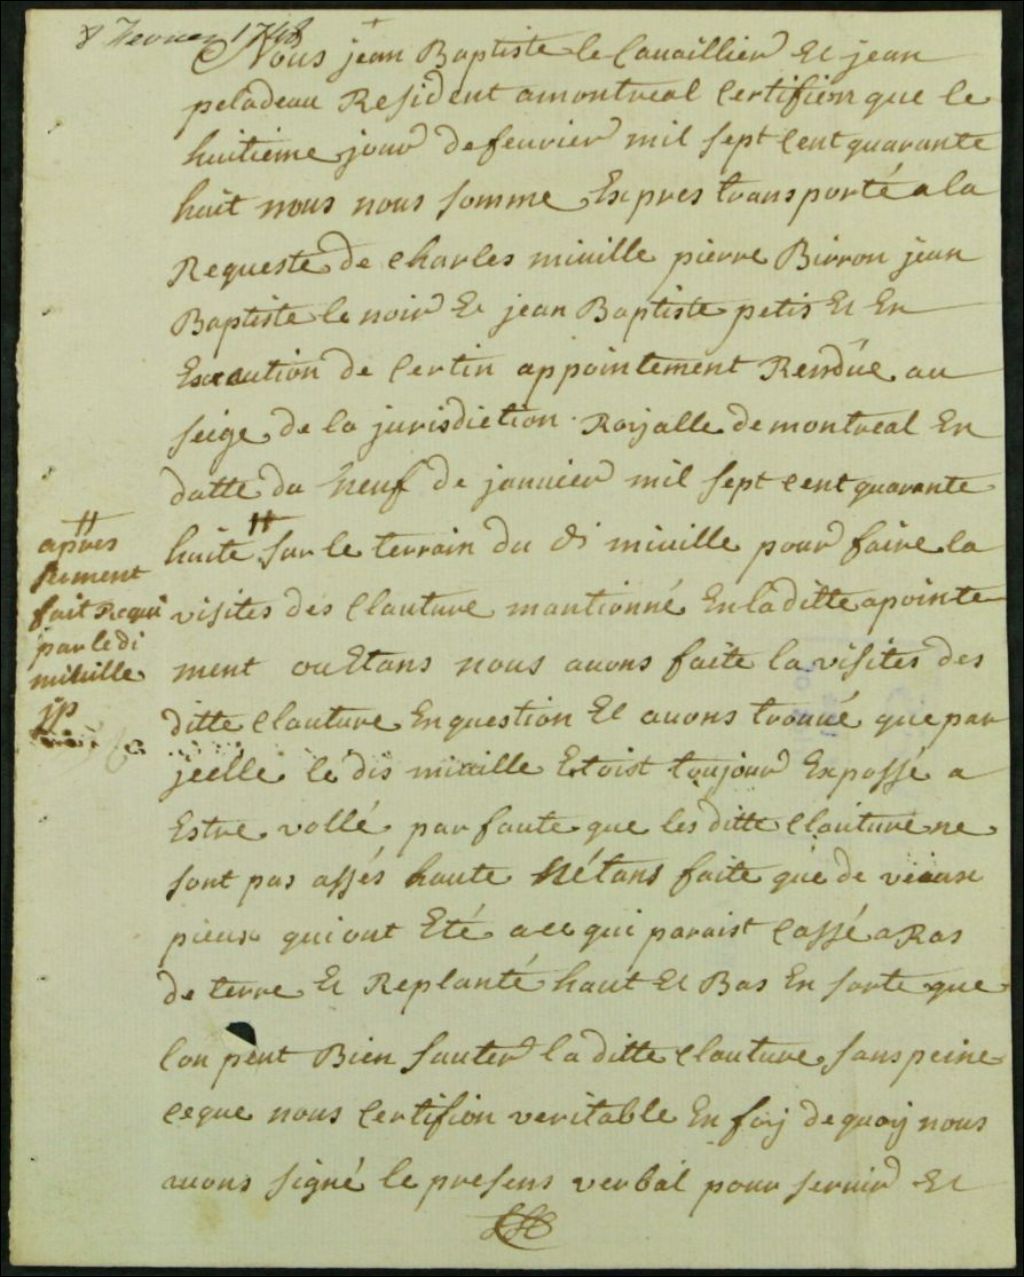 8 Fevrier 1748
Nous jean Baptiste le Cauaillier Et jean
peladeau Resident a montreal Certifion que le
huitieme jour de feurier mil sept Cent quarante
huit nous nous somme Expres transporté a la
Requeste de Charles miuille pierre Birron jean
Baptiste le noir Et jean Baptiste petis Et En
Execution de Certin appointement Rendüe au
seige de la jurisdiction Royalle de montreal En
datte du neuf de januier mil sept Cent quarante
huite # sur le terrain du di miuille pour faire la
visites des Clauture mantionné En la ditte apointe
ment ou Etans nous auons faite la visites des
ditte Clauture En question Et auons trouué que par
jcelle le dis miuille Estoist toujour Expossé a
Estre vollé par faute que les ditte Clauture ne
sont pas assés haute Nétans faite que de vieux
pieux qui ont Eté a ce qui paraist Cassé a Ras
de terre Et Replanté haut Et Bas En sorte que
lon peut Bien sauter la ditte Clauture sans peine
Ce que nous Certifion veritable En foij de quoij nous
auons signé le presens verbal pour seruir Et
#
apres
serment
fait Requi
par le di
miuille
jp